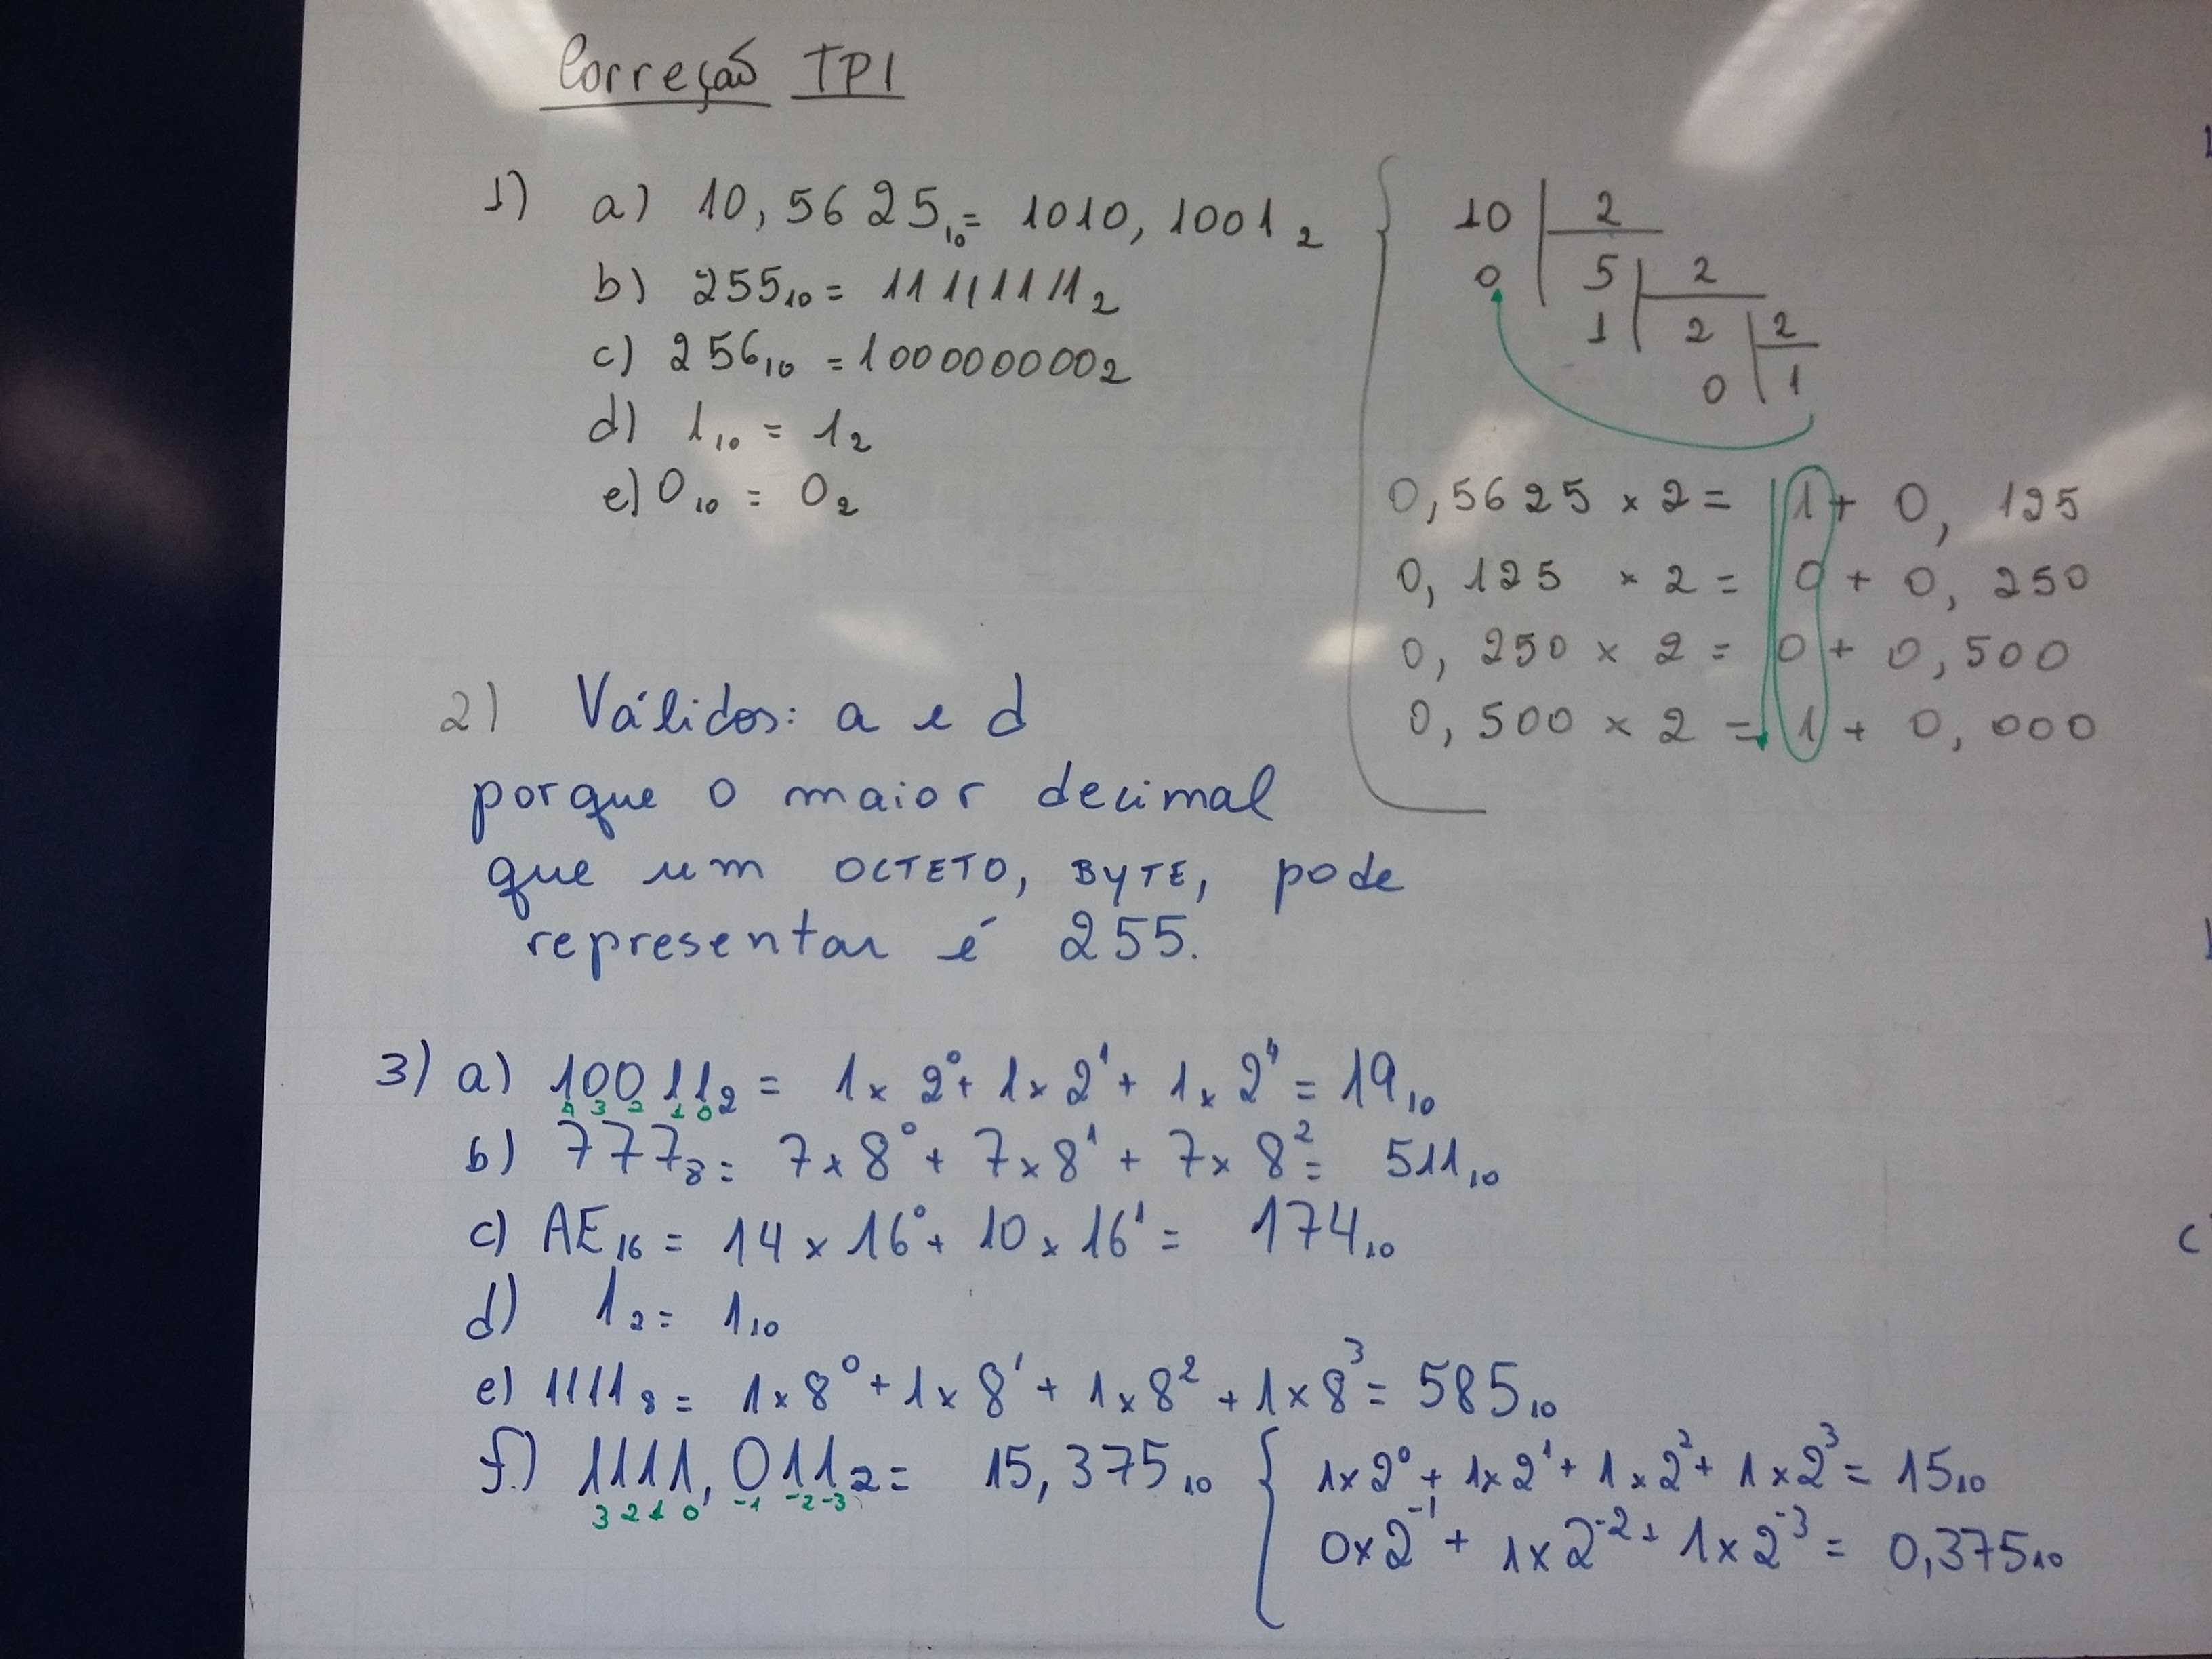 Correção TP1
1) a) 10,5625₁₀ = 1010,1001₂
b) 255₁₀ = 11111111₂
c) 256₁₀ = 100000000₂
d) 1₁₀ = 1₂
e) 0₁₀ = 0₂
10 | 2
0 5 | 2
1 2 | 2
0 1
0,5625 × 2 = 1 + 0,125
0,125 × 2 = 0 + 0,250
0,250 × 2 = 0 + 0,500
0,500 × 2 = 1 + 0,000
2) Válidos: a e d
porque o maior decimal
que um OCTETO, BYTE, pode
representar é 255.
3) a) 10011₂ = 1 × 2⁰ + 1 × 2¹ + 1 × 2⁴ = 19₁₀
4 3 2 1 0
b) 777₈ = 7 × 8⁰ + 7 × 8¹ + 7 × 8² = 511₁₀
c) AE₁₆ = 14 × 16⁰ + 10 × 16¹ = 174₁₀
d) 1₂ = 1₁₀
e) 1111₈ = 1 × 8⁰ + 1 × 8¹ + 1 × 8² + 1 × 8³ = 585₁₀
f) 1111,011₂ = 15,375₁₀
3 2 1 0 -1 -2 -3
1 × 2⁰ + 1 × 2¹ + 1 × 2² + 1 × 2³ = 15₁₀
0 × 2⁻¹ + 1 × 2⁻² + 1 × 2⁻³ = 0,375₁₀